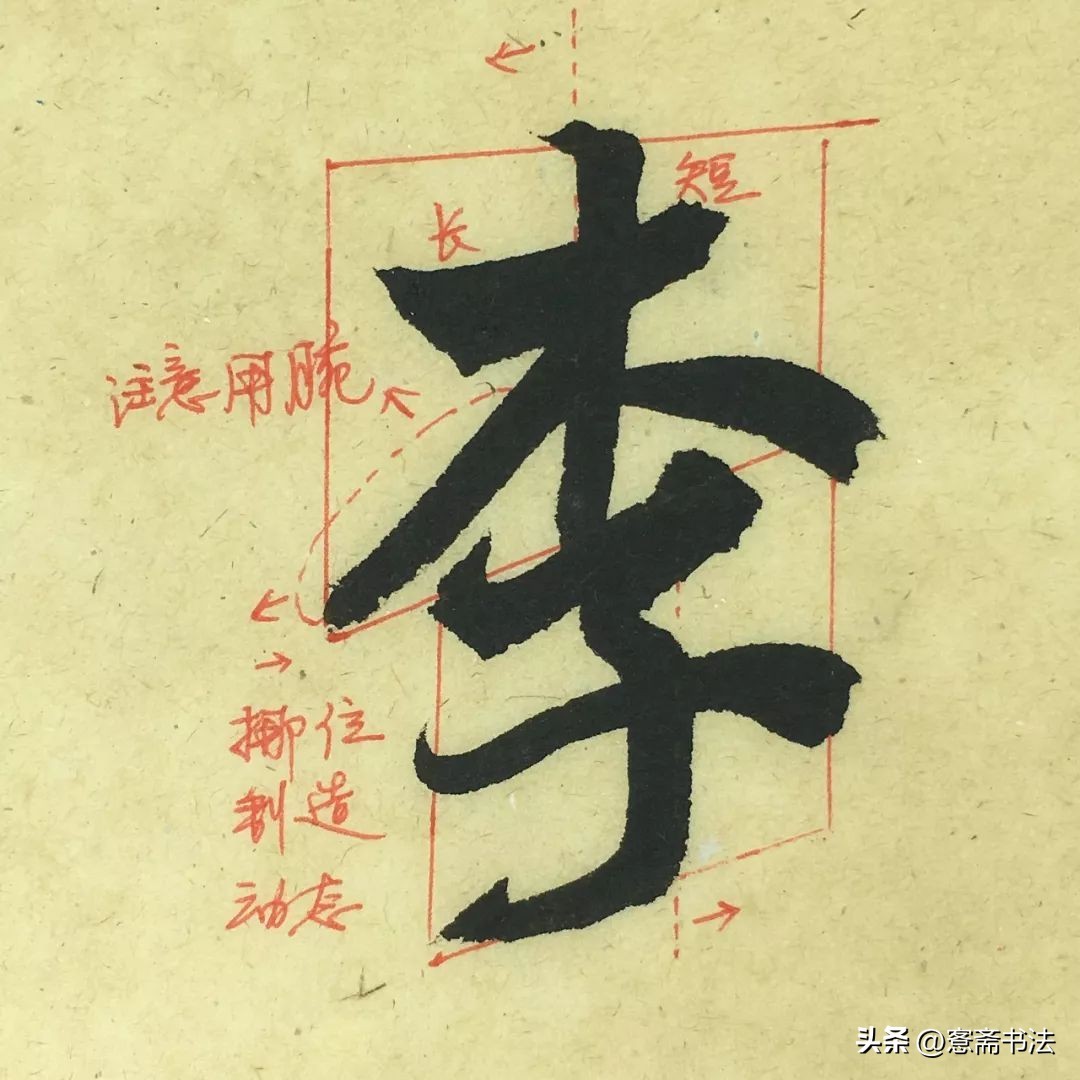 短
长
李
注意用腕
挪位
制造
动态
头条 @寋斋书法